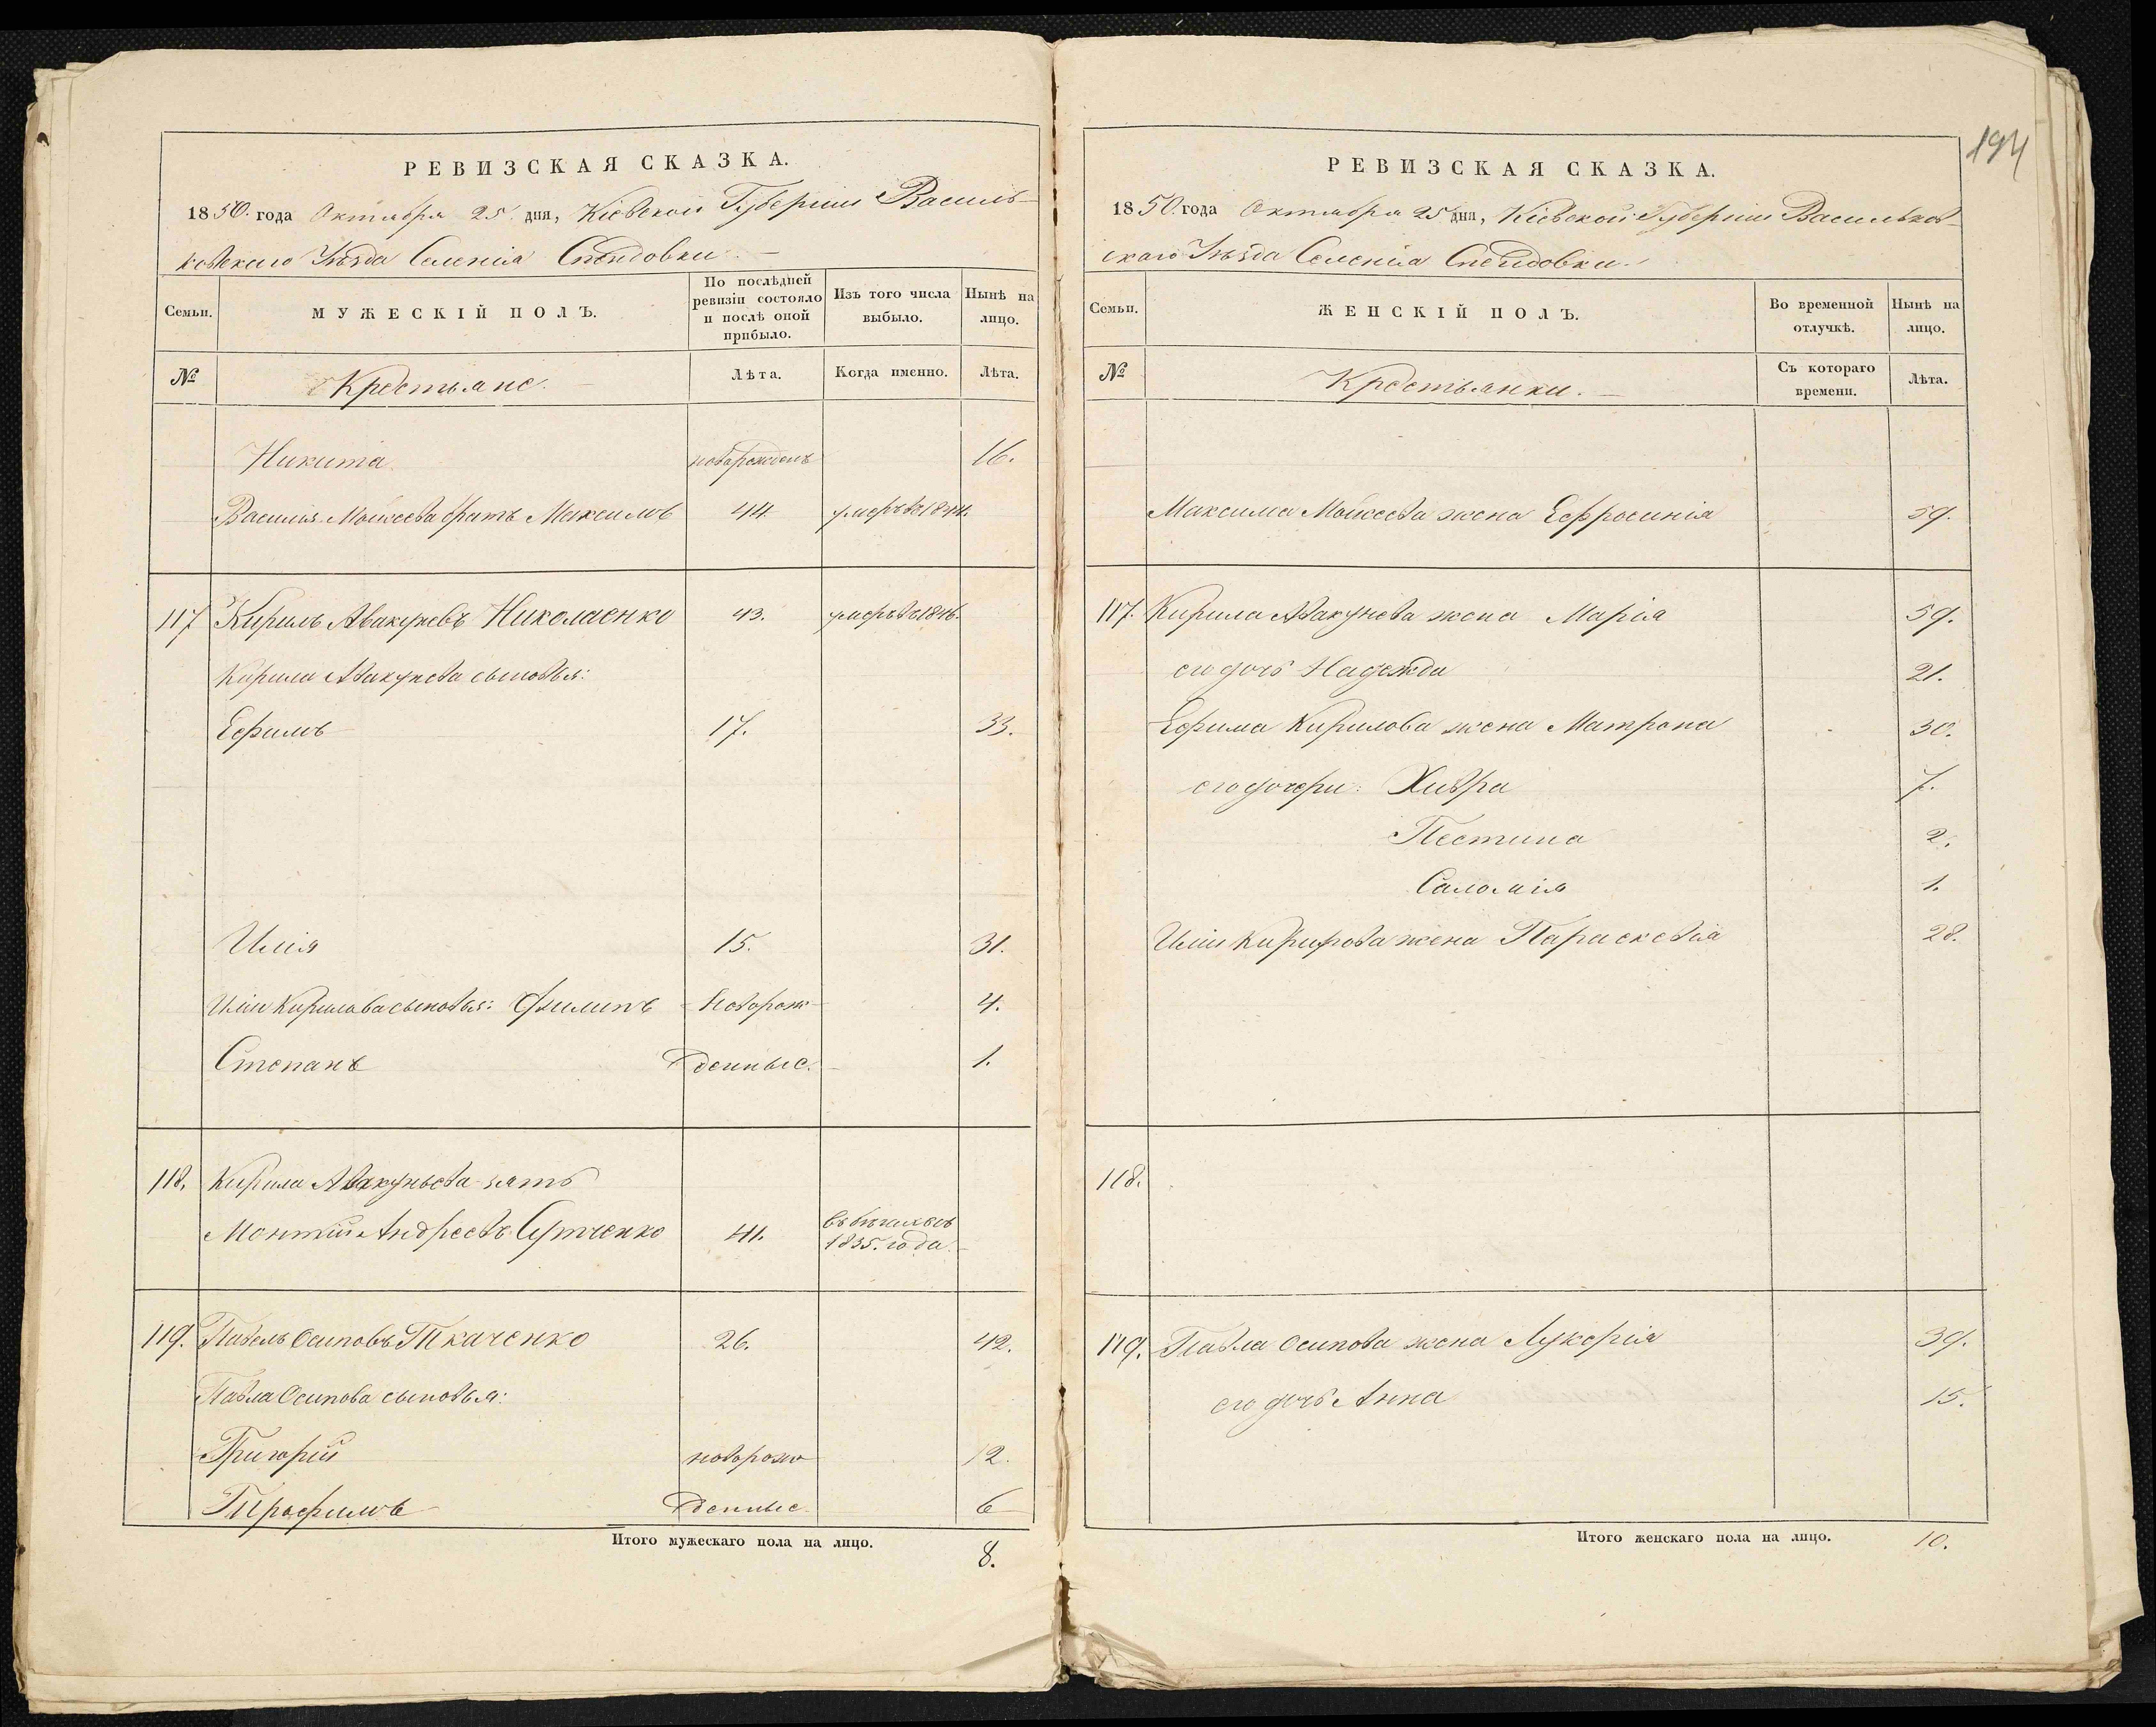 РЕВИЗСКАЯ СКАЗКА.
1850. года Октября 25. дня, Кіевской Губерніи Василь-
ковскаго Уѣзда Селенія Спендовки.
Семьи. МУЖЕСКІЙ ПОЛЪ. По послѣдней ревизіи состояло и послѣ оной прибыло. Изъ того числа выбыло. Нынѣ на лицо.
№ Крестьяне. Лѣта. Когда именно. Лѣта.
Никита новорожденъ 16.
Василія Моисеева братъ Максимъ 44 умеръ въ 1844.
117 Кирилъ Авакумовъ Николаенко 43. умеръ въ 1846.
Кирила Авакумова сыновья:
Ефимъ 17. 33.
Илія 15. 31.
Иліи Кирилова сыновья: Филипъ Новорож 4.
Степанъ денные. 1.
118. Кирила Авакумьева зять
Монтій Андреевъ 41. въ бѣгахъ съ 1835. года
119. Павелъ Осиповъ Ткаченко 26. 42.
Павла Осипова сыновья:
Григорій новорож 12.
Трофимъ денные 6
Итого мужескаго пола на лицо. 8.
194
РЕВИЗСКАЯ СКАЗКА.
1850. года Октября 25 дня, Кіевской Губерніи Васильков-
скаго Уѣзда Селенія Спендовки.
Семьи. ЖЕНСКІЙ ПОЛЪ. Во временной отлучкѣ. Нынѣ на лицо.
№ Крестьянки. Съ котораго времени. Лѣта.
Максима Моисеева жена Ефросинія 59.
117. Кирила Авакумова жена Марія 59.
его дочь Надежда 21.
Ефима Кирилова жена Матрона 30.
его дочери: Хивра 7.
Пестина 2.
Саломія 1.
Иліи Кирилова жена Параскевія 28.
118.
119. Павла Осипова жена Лукерія 39.
его дочь Анна 15.
Итого женскаго пола на лицо. 10.